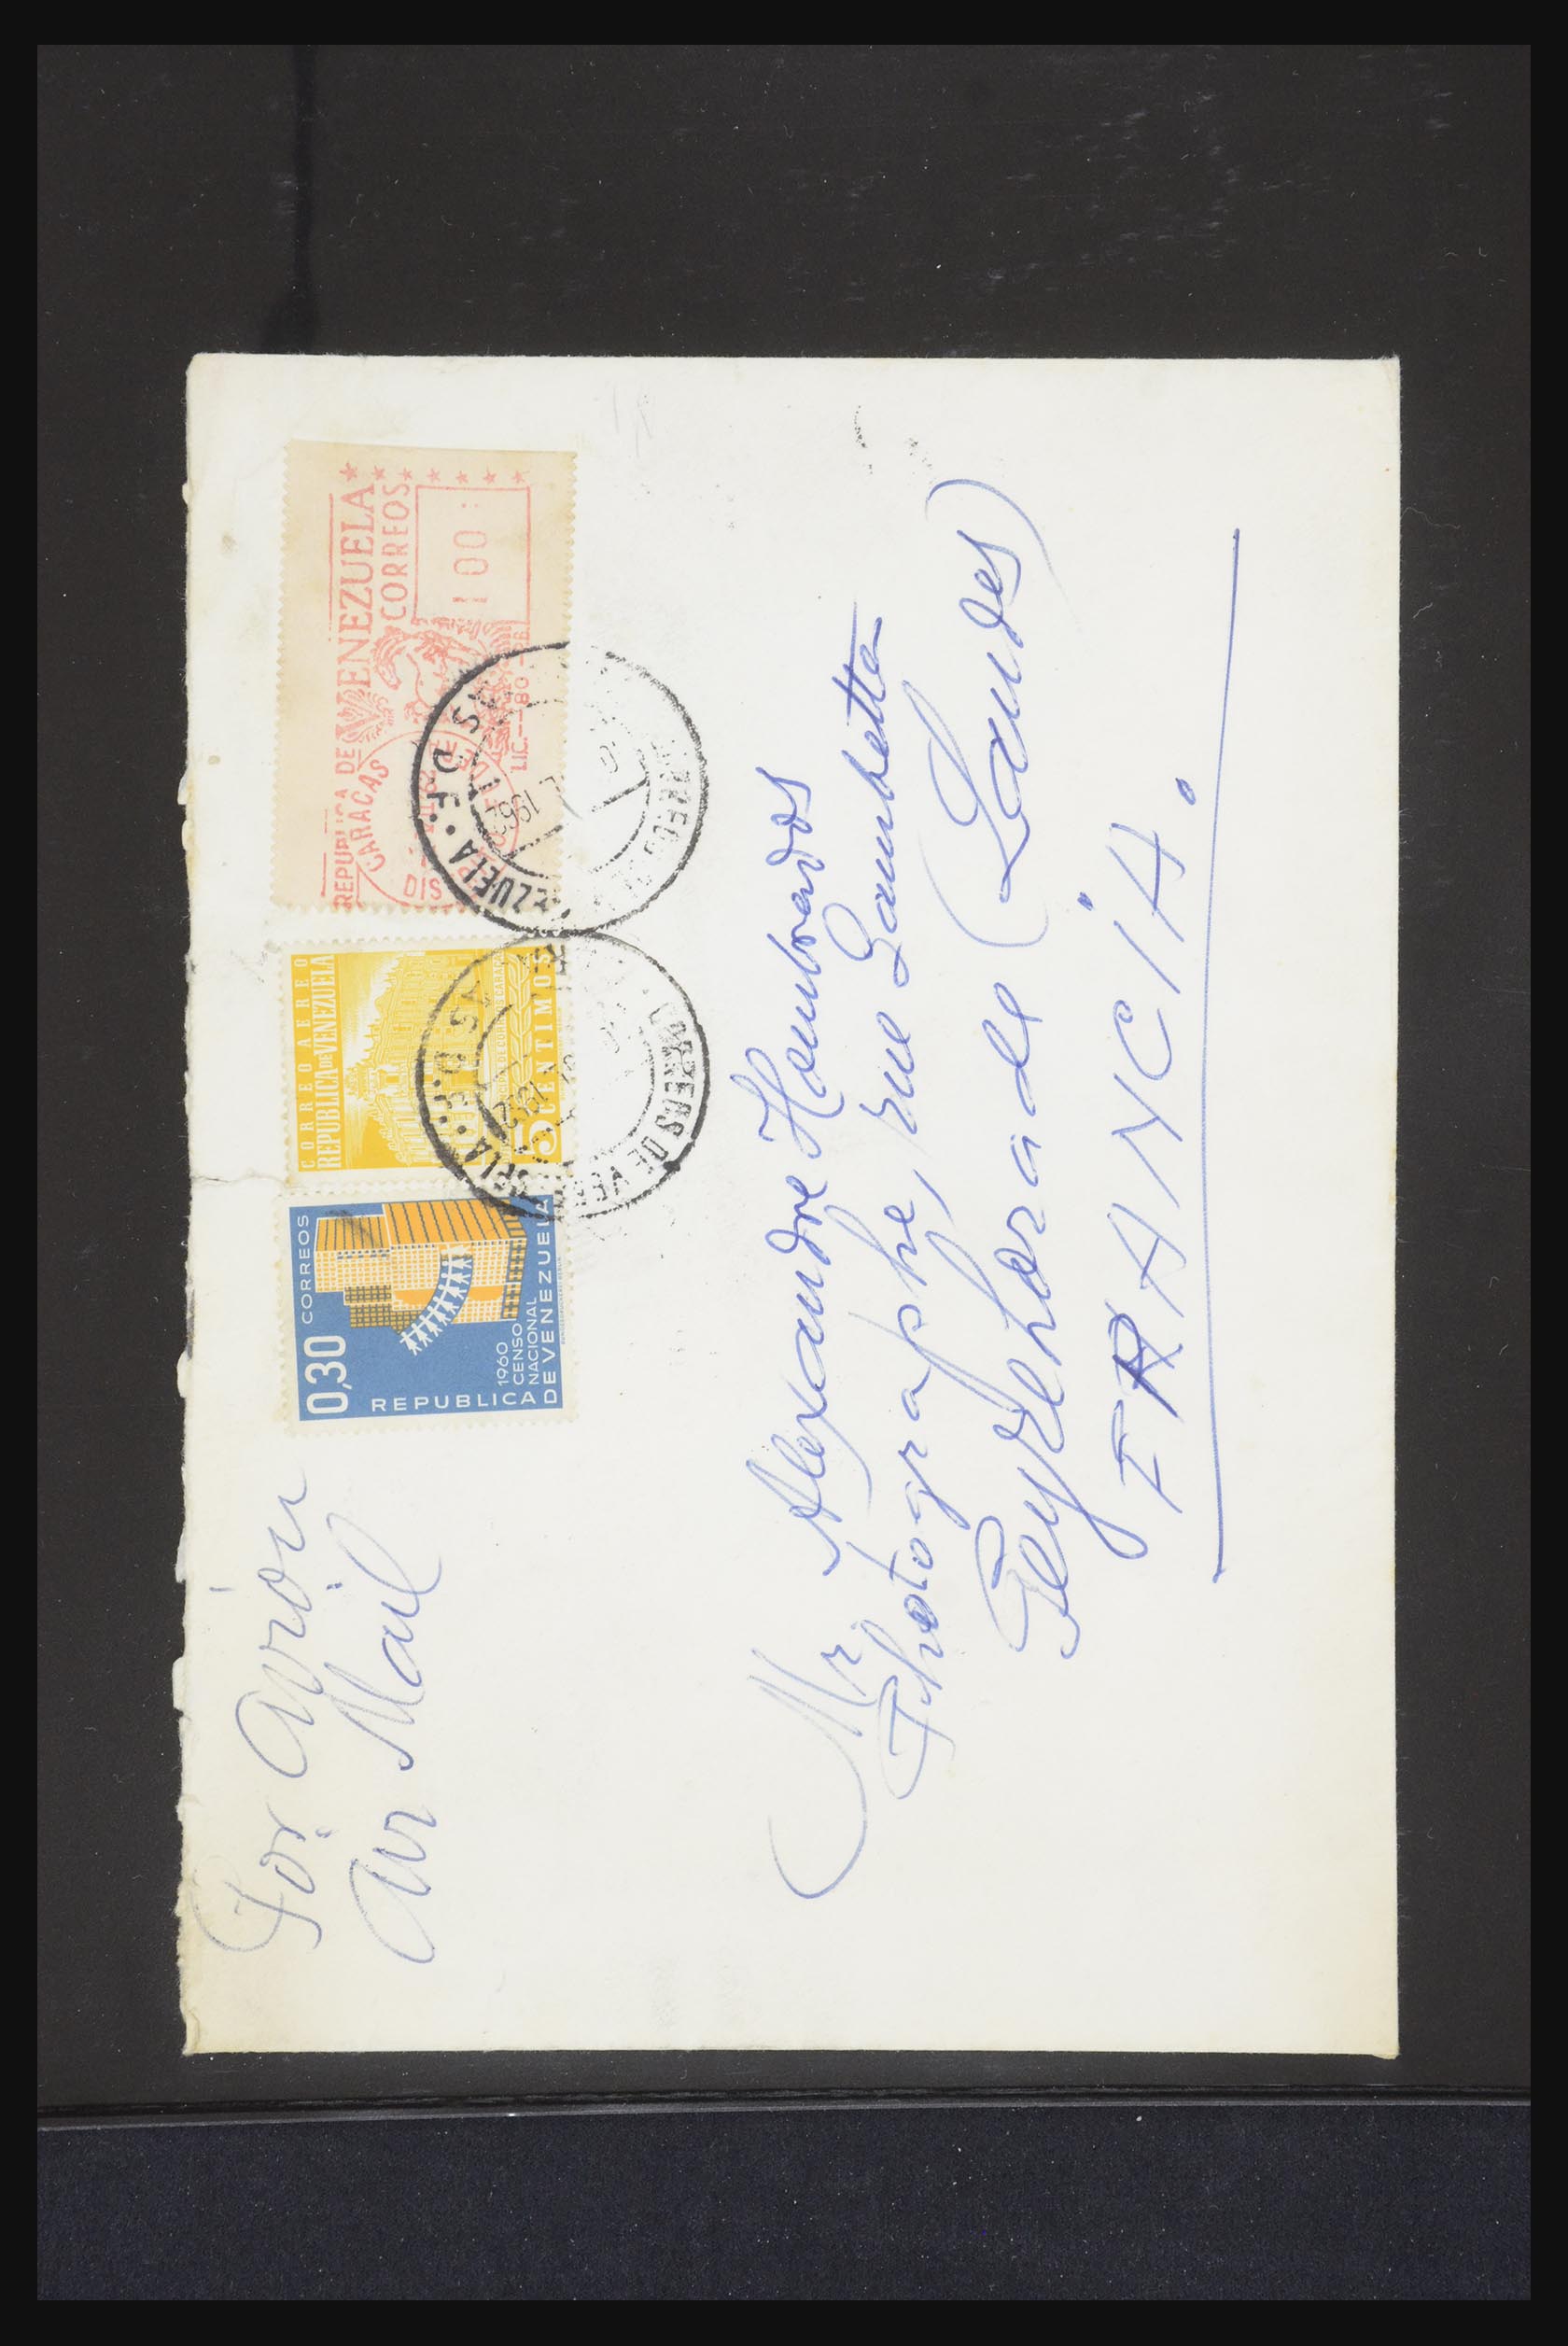 Por Avión
Air Mail
0,30 CORREOS
1960
CENSO
NACIONAL
REPUBLICA DE VENEZUELA
CORREO AEREO
REPUBLICA DE VENEZUELA
5 CENTIMOS
REPUBLICA DE VENEZUELA
CARACAS CORREOS
100
DIS
LIC.--80
CARACAS D.F.
CORREOS DE VENEZUELA
1962
Mr Alexandre Hombrados
Photographe, rue Gambetta
Peyrehorade (Landes)
FRANCIA.